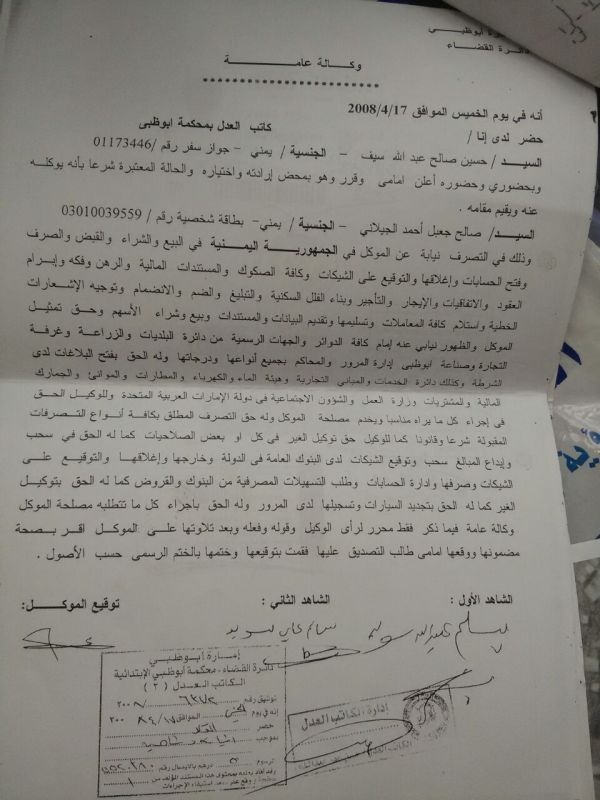 دائرة القضاء
وكـالة عامـة
أنه في يوم الخميس الموافق 2008/4/17
حضر لدى إنا / كاتب العدل بمحكمة ابوظبى
السيـد / حسين صالح عبد الله سيف – الجنسية / يمني – جواز سفر رقم /01173446
وبحضوري وحضوره أعلن امامى وقرر وهو بمحض إرادته واختياره والحالة المعتبرة شرعا بأنه يوكله
عنه ويقيم مقامه .
السيـد/ صالح جعبل أحمد الجيلاني – الجنسية / يمني- بطاقة شخصية رقم /03010039559
وذلك في التصرف نيابة عن الموكل في الجمهوريـة اليمـنية في البيع والشراء والقبض والصرف
وفتح الحسابات وإغلاقها والتوقيع على الشيكات وكافة الصكوك والمستندات المالية والرهن وفكه وإبرام
العقود والاتفاقيات والإيجار والتأجير وبناء الفلل السكنية والتبليغ والضم والانضمام وتوجيه الإشعارات
الخطية واستلام كافة المعاملات وتسليمها وتقديم البيانات والمستندات وبيع وشراء الأسهم وحق تمثيل
الموكل والظهور نيابي عنه إمام كافة الدوائر والجهات الرسمية من دائرة البلديات والزراعة وغرفة
التجارة وصناعة ابوظبى إدارة المرور والمحاكم بجميع أنواعها ودرجاتها وله الحق بفتح البلاغات لدى
الشرطة وكذلك دائرة الخدمات والمبانى التجارية وهيئة الماء والكهرباء والمطارات والموانئ والجمارك
المالية والمشتريات وزارة العمل والشؤون الاجتماعية فى دولة الإمارات العربية المتحدة وللوكيل الحـق
فى إجراء كل ما يراه مناسبا ويخدم مصلحة الموكل وله حق التصرف المطلق بكافة أنـواع التـصرفات
المقبولة شرعا وقانونا كما للوكيل حق توكيل الغير فى كل او بعض الصلاحيات كما له الحق في سحب
وإيداع المبالغ سحب وتوقيع الشيكات لدى البنوك العامة فى الدولة وخارجها وإغلاقهـا والتوقيع علـى
الشيكات وصرفها وادارة الحسابات وطلب التسهيلات المصرفية من البنوك والقروض كما له الحق بتوكـيل
الغير كما له الحق بتجديد السيارات وتسجيلها لدى المرور وله الحق باجراء كل ما تتطلبه مصلحة الموكل
وكالة عامة فيما ذكر فقط محرر لرأى الوكيل وقوله وفعله وبعد تلاوتها علـى الموكـل اقر بـصحة
مضمونها ووقعها امامى طالب التصديق عليها فقمت بتوقيعها وختمها بالختم الرسمى حسب الأصول .
الشاهد الأول : الشاهد الثاني : توقيع الموكـل:
إمـارة أبـوظبـي
دائـرة القضـاء - محكمة أبوظبي الإبتدائية
الكاتب العـدل ( ٢ )
إدارة الكاتب العدل